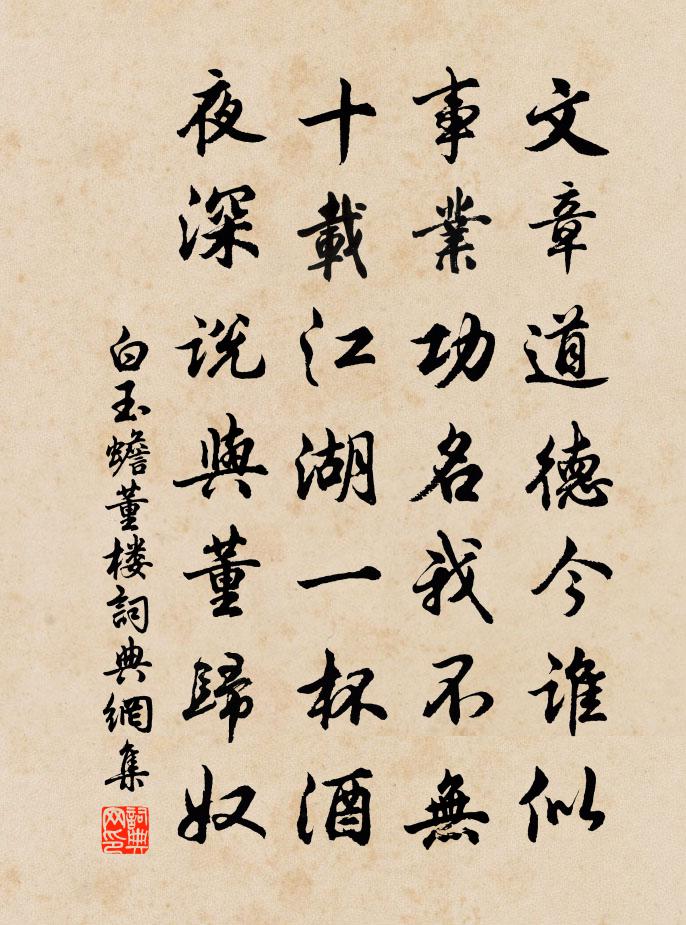 文章道德今谁似
事業功名我不無
十載江湖一杯酒
夜深说與董歸奴
白玉蟾董楼詞典網集
詞典网印